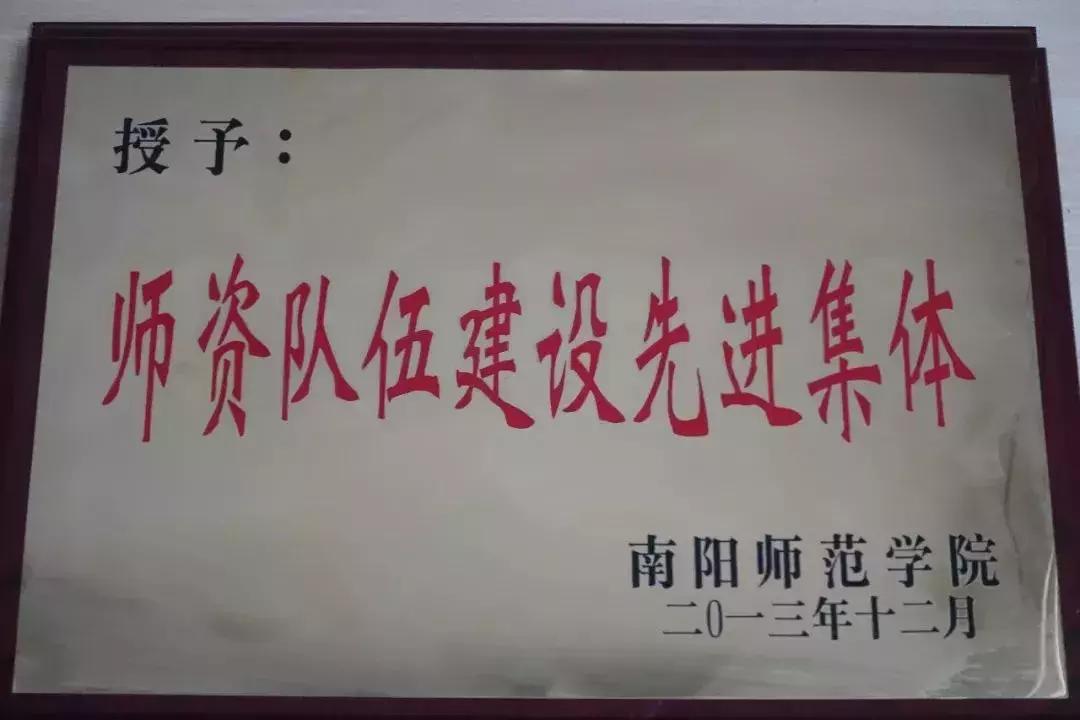 授予：
师资队伍建设先进集体
南阳师范学院
二0一三年十二月